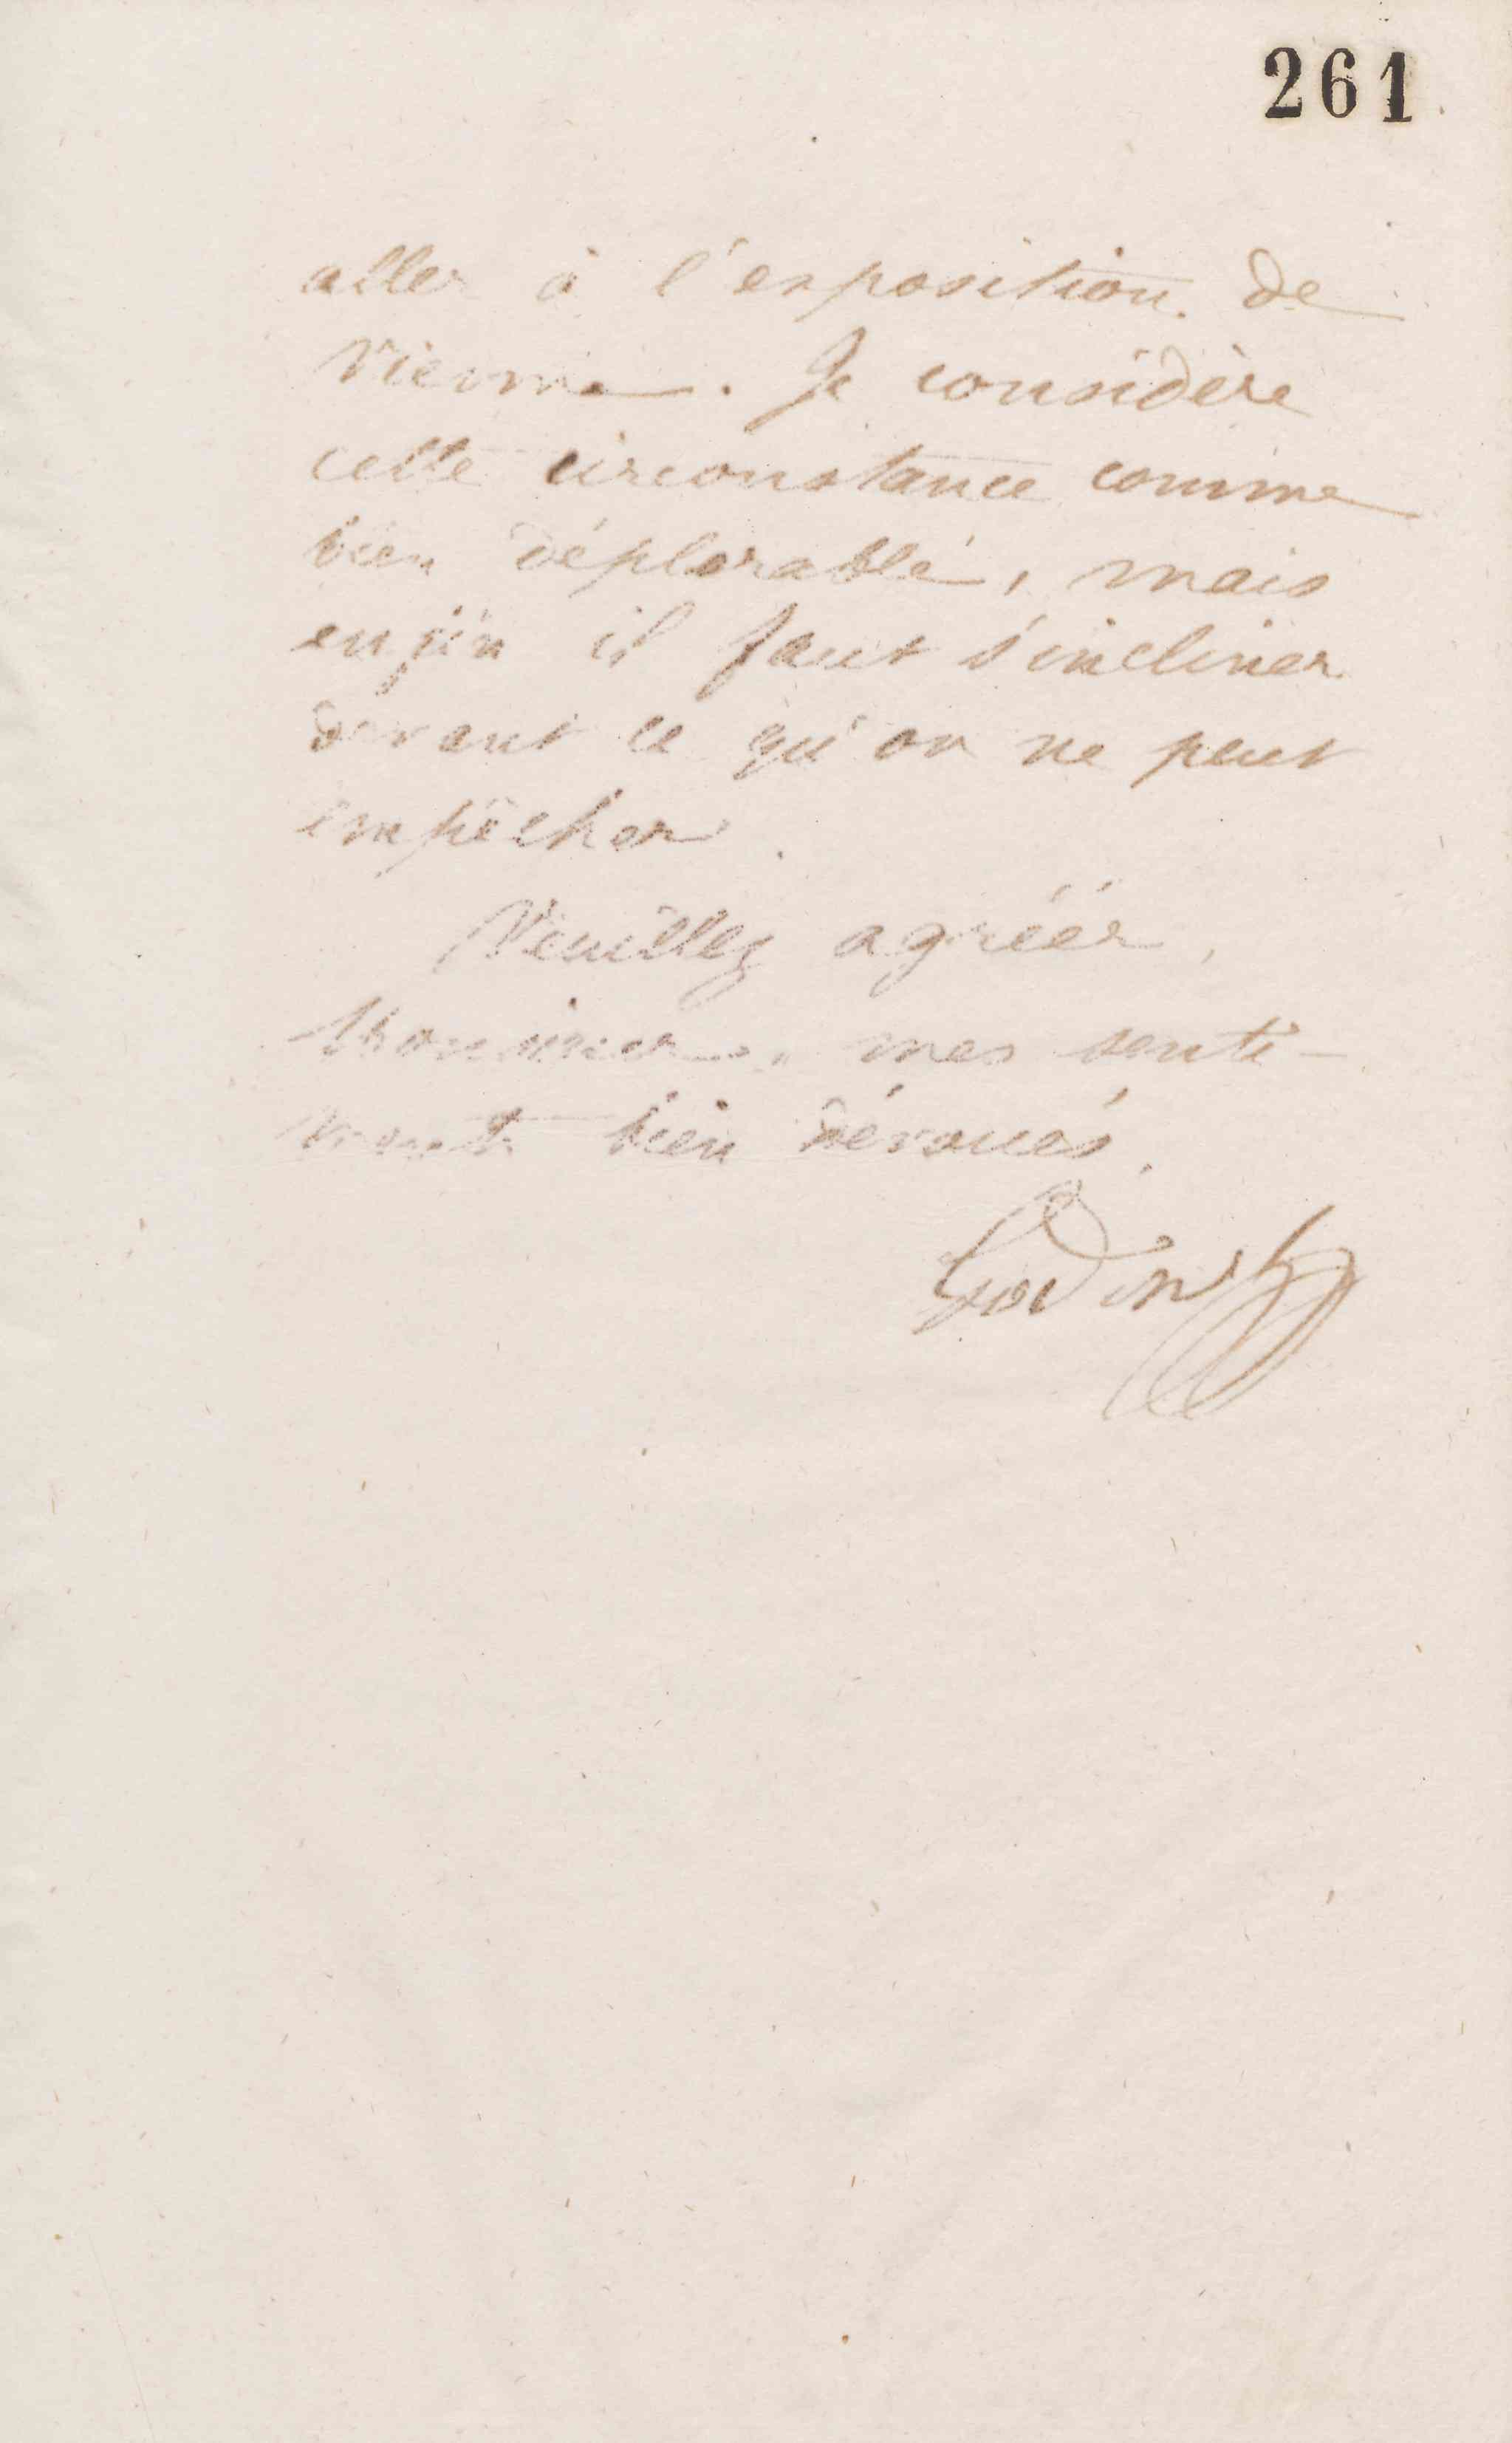 261
aller à l'exposition de
Vienne. Je considère
cette circonstance comme
bien déplorable, mais
enfin il faut s'incliner
devant ce qu'on ne peut
empêcher.
Veuillez agréer,
Monsieur, mes senti-
ments bien dévoués.
Godin